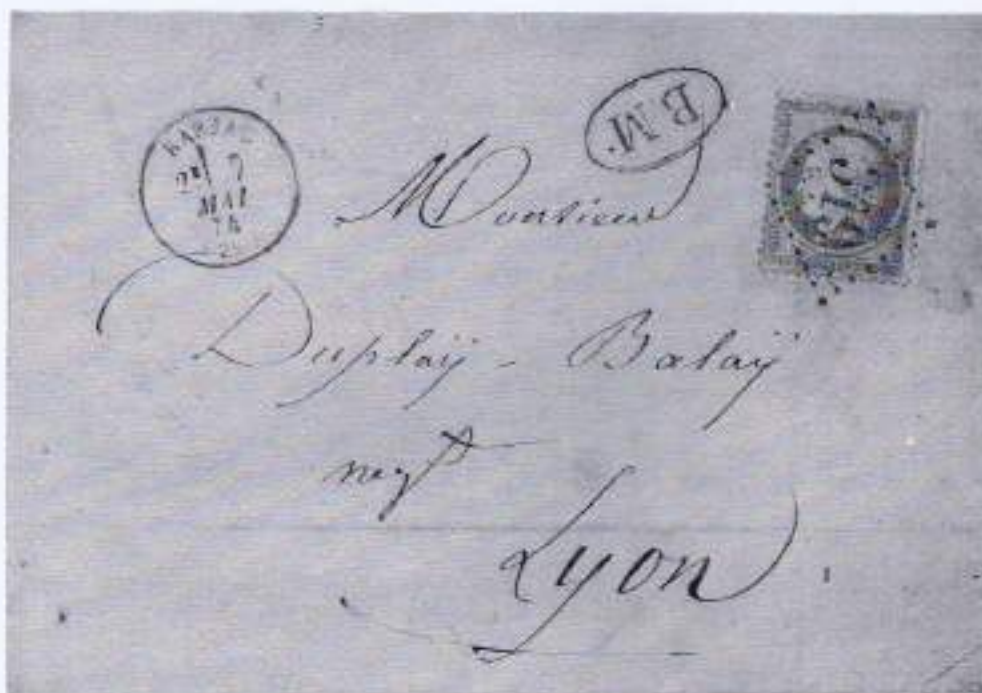 B.M.
2E 7
MAI
74
Monsieur
Duplaÿ - Balaÿ
negt
Lyon